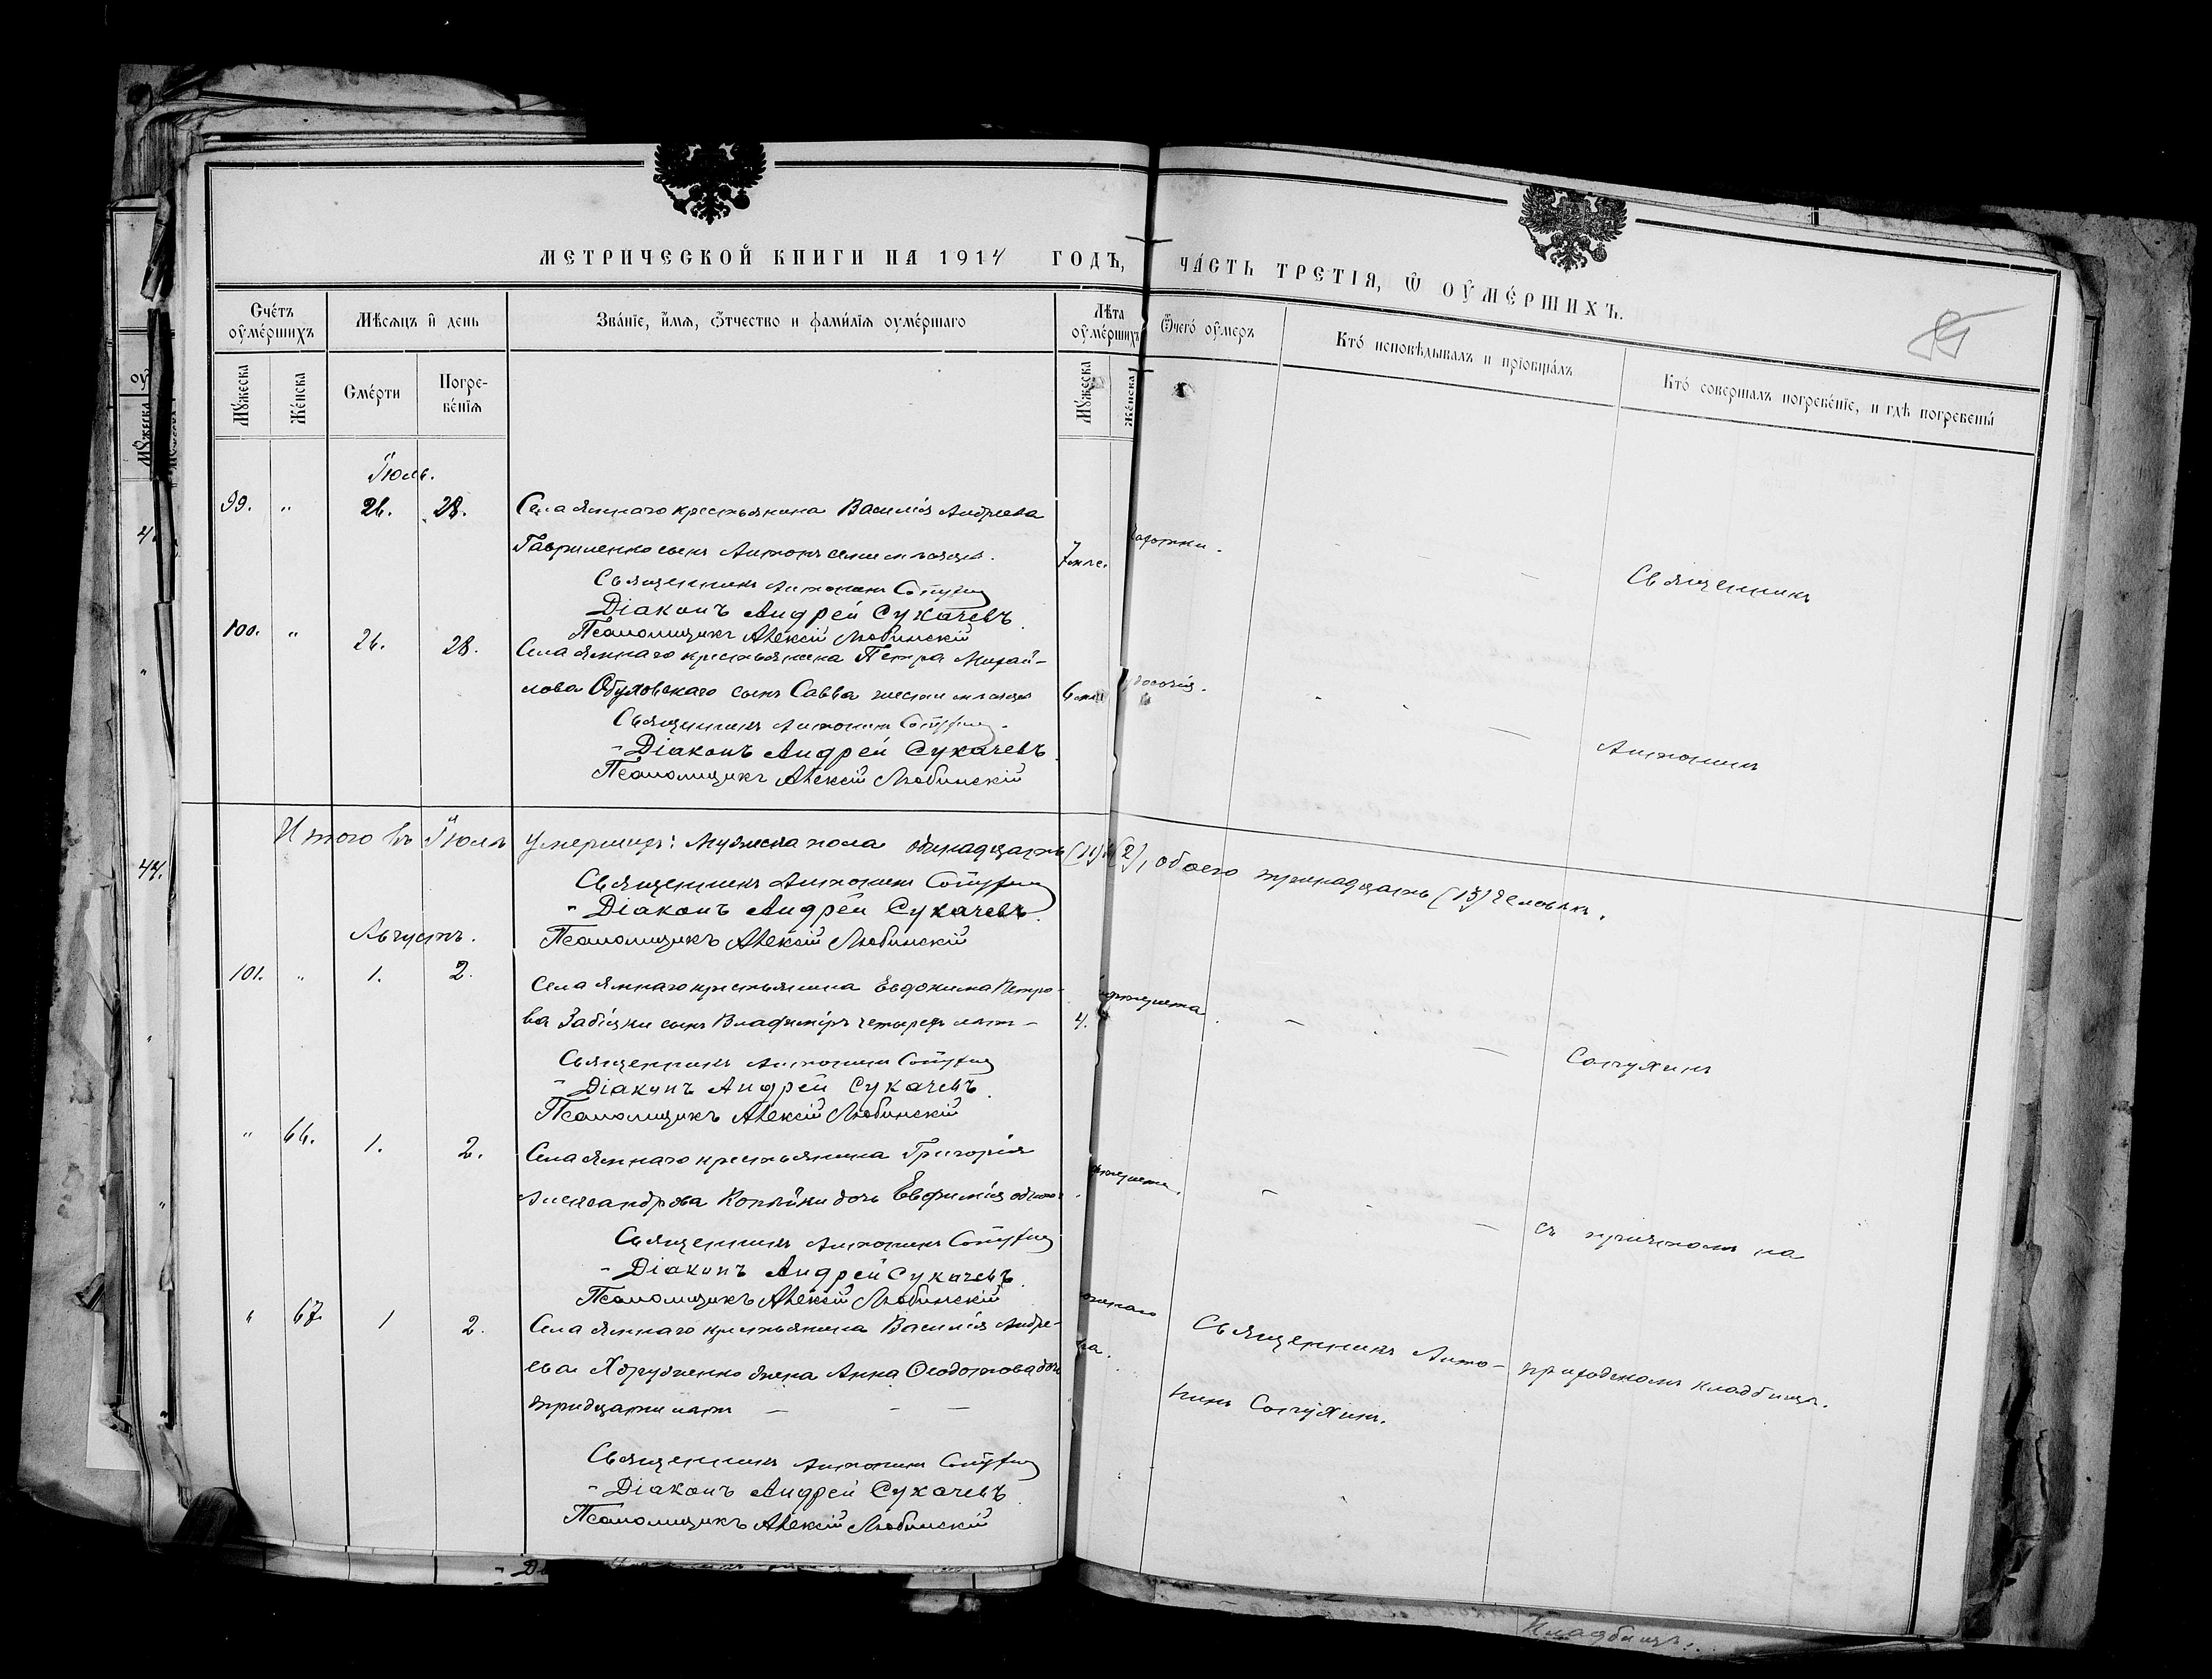 МЕТРИЧЕСКОЙ КНИГИ НА 1914 ГОДЪ,
ЧАСТЬ ТРЕТІЯ, Ѡ ОУМЕРШИХЪ.
Счетъ оумершихъ
Мѣсяцъ и день
Званіе, имя, отчество и фамилія оумершаго
Лѣта оумершихъ
Ѿчего оумеръ
Кто исповѣдывалъ и пріобщалъ
Кто совершалъ погребеніе, и гдѣ погребены
Мужеска
Женска
Смерти
Погребенія
Мужеска
Женска
Іюль.
99. " 26. 28. Села Ямнаго крестьянина Василія Андреева
Гавриленко сынъ Антонъ семи месяцевъ. 7 мѣс.
Священникъ Антонинъ Сотухинъ
Діаконъ Андрей Сукачевъ.
Псаломщикъ Алексій Любинскій
Священникъ
100. " 26. 28. Села Ямнаго крестьянина Петра Михай-
лова Обуховскаго сынъ Савва шести месяцевъ
Священникъ Антонинъ Сотухинъ
Діаконъ Андрей Сукачевъ.
Псаломщикъ Алексій Любинскій
Антонинъ
Итого въ Іюлѣ умершихъ: Мужеска пола одинадцать (11) (2), обоего тринадцать (13) человѣкъ.
Священникъ Антонинъ Сотухинъ
Діаконъ Андрей Сукачевъ.
Псаломщикъ Алексій Любинскій
Августъ.
101. " 1. 2. Села Ямнаго крестьянина Евдокима Петро-
ва Забіяки сынъ Владиміръ четырехъ лѣтъ – 4.
Священникъ Антонинъ Сотухинъ
Діаконъ Андрей Сукачевъ.
Псаломщикъ Алексій Любинскій
Сотухинъ
" 66. 1. 2. Села Ямнаго крестьянина Григорія
Александрова Копѣйки дочь Евфимія
Священникъ Антонинъ Сотухинъ
Діаконъ Андрей Сукачевъ.
Псаломщикъ Алексій Любинскій
съ причтомъ на
" 67. 1 2. Села Ямнаго крестьянина Василія Андре-
ева жена Анна Ѳеодотова
тридцати лѣтъ – – –
Священникъ Антонинъ Сотухинъ
Діаконъ Андрей Сукачевъ
Псаломщикъ Алексій Любинскій
Священникъ Анто-
нинъ Сотухинъ.
приходскомъ кладбищѣ.
Кладбищѣ.